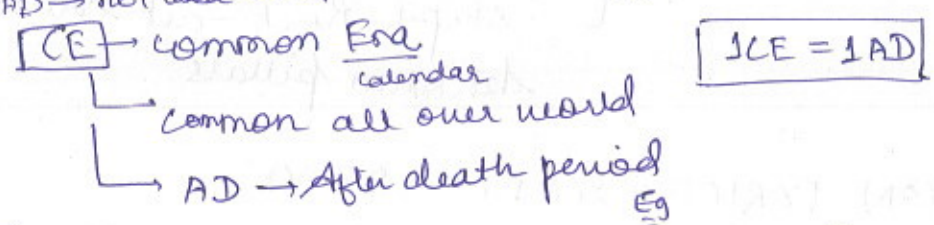 CE → common Era
calendar
1CE = 1AD
common all over world
AD → After death period
Eg